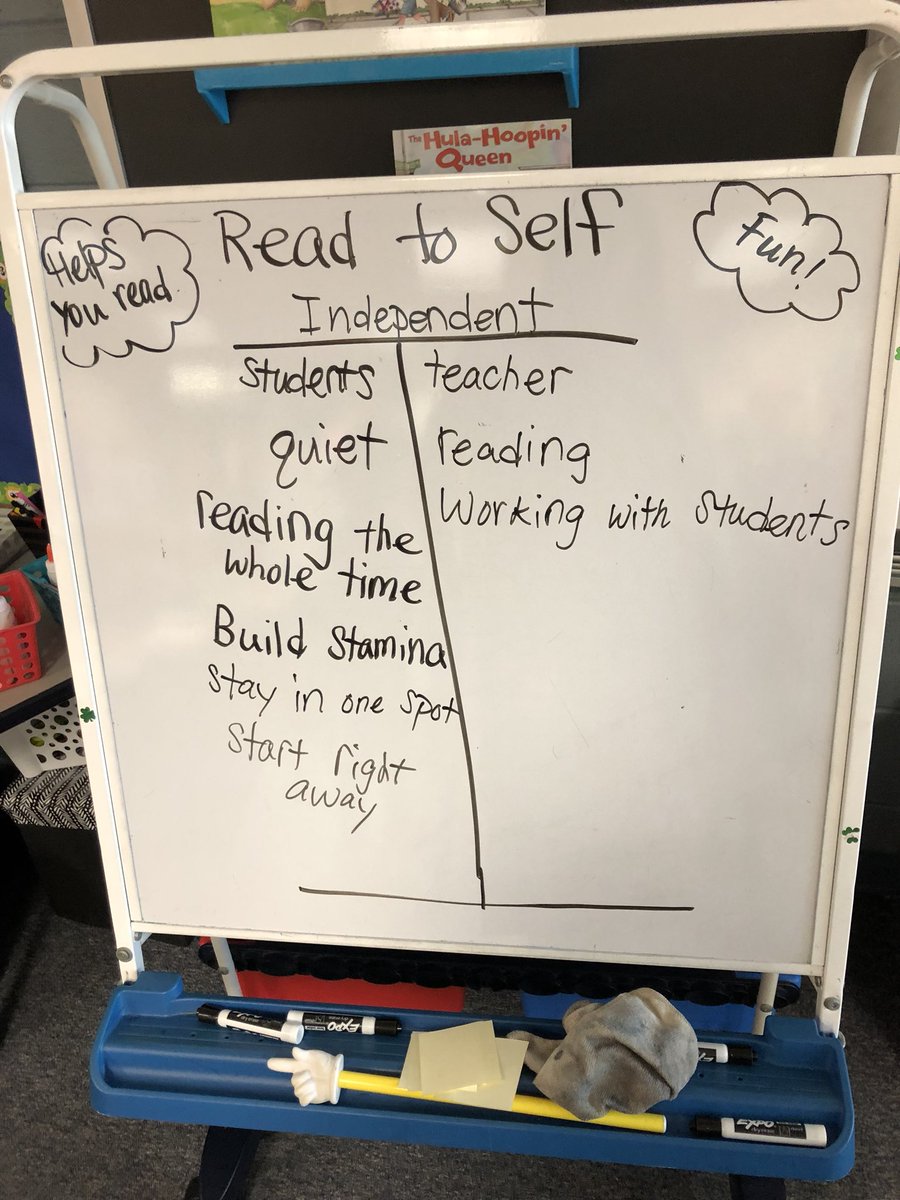 The Hula-Hoopin'
Queen
Helps
You read
Read to Self
Fun!
Independent
Students
teacher
quiet
reading
reading the
whole time
Working with Students
Build Stamina
Stay in one spot
Start right
away
EXPO
EXPO